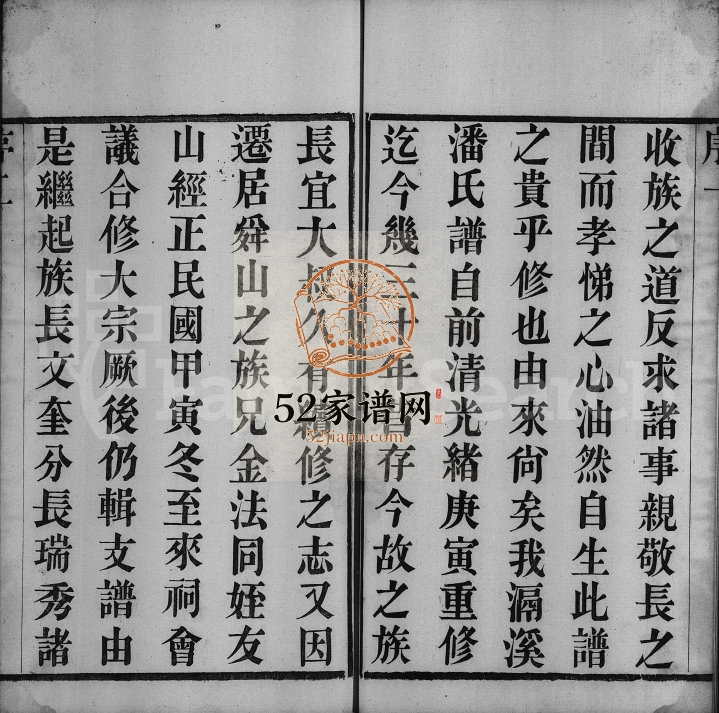 收族之道反求諸事親敬長之
間而孝悌之心油然自生此譜
之貴乎修也由來尙矣我漍溪
潘氏譜自前清光緒庚寅重修
迄今幾三十年昔存今故之族
長宜大叔久有續修之志又因
遷居舜山之族兄金法同姪友
山經正民國甲寅冬至來祠會
議合修大宗厥後仍輯支譜由
是繼起族長文奎分長瑞秀諸
52家谱网
52jiapu.com